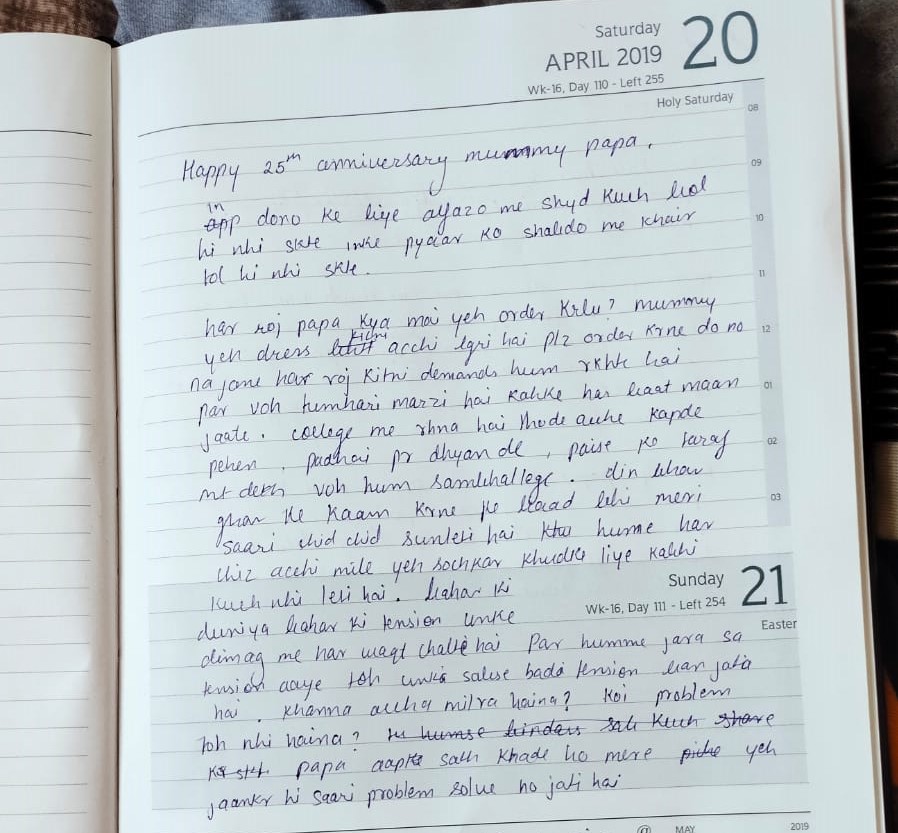 Saturday
APRIL 2019
20
Wk-16, Day 110 - Left 255
Holy Saturday
08
Happy 25th anniversary mummy papa.
09
in
app dono ke liye alfazo me shyd kuch bol
10
hi nhi skte inke pyaar ko shabdo me khair
tol hi nhi skte.
11
har roj papa kya mai yeh order krlu? mummy
kitni
yeh dress acchi lgri hai plz order krne do no
12
na jane har roj kitni demands hum rkhte hai
par voh tumhari marzi hai kahke har baat maan
01
jaate. college me rhna hai thode acche kapde
pehen, padhai pr dhyan de, paise ko taraf
02
mt dekh voh hum sambhallege. din bhar
ghar ke kaam krne ke baad bhi meri
03
saari chid chid sunleti hai hume har
chiz acchi mile yeh sochkar khudke liye kabhi
kuch nhi leti hai. bahar ki
Sunday
21
Wk-16, Day 111 - Left 254
Easter
duniya bahar ki tension unke
dimag me har waqt chalte hai par humme jara sa
tension aaye toh unke sabse bada tension ban jata
hai. khanna accha milra haina? koi problem
toh nhi haina? hu humse bindass sab kuch share
kr skte papa aapke sath khade ho mere piche yeh
jaankr hi saari problem solve ho jati hai
MAY
2019